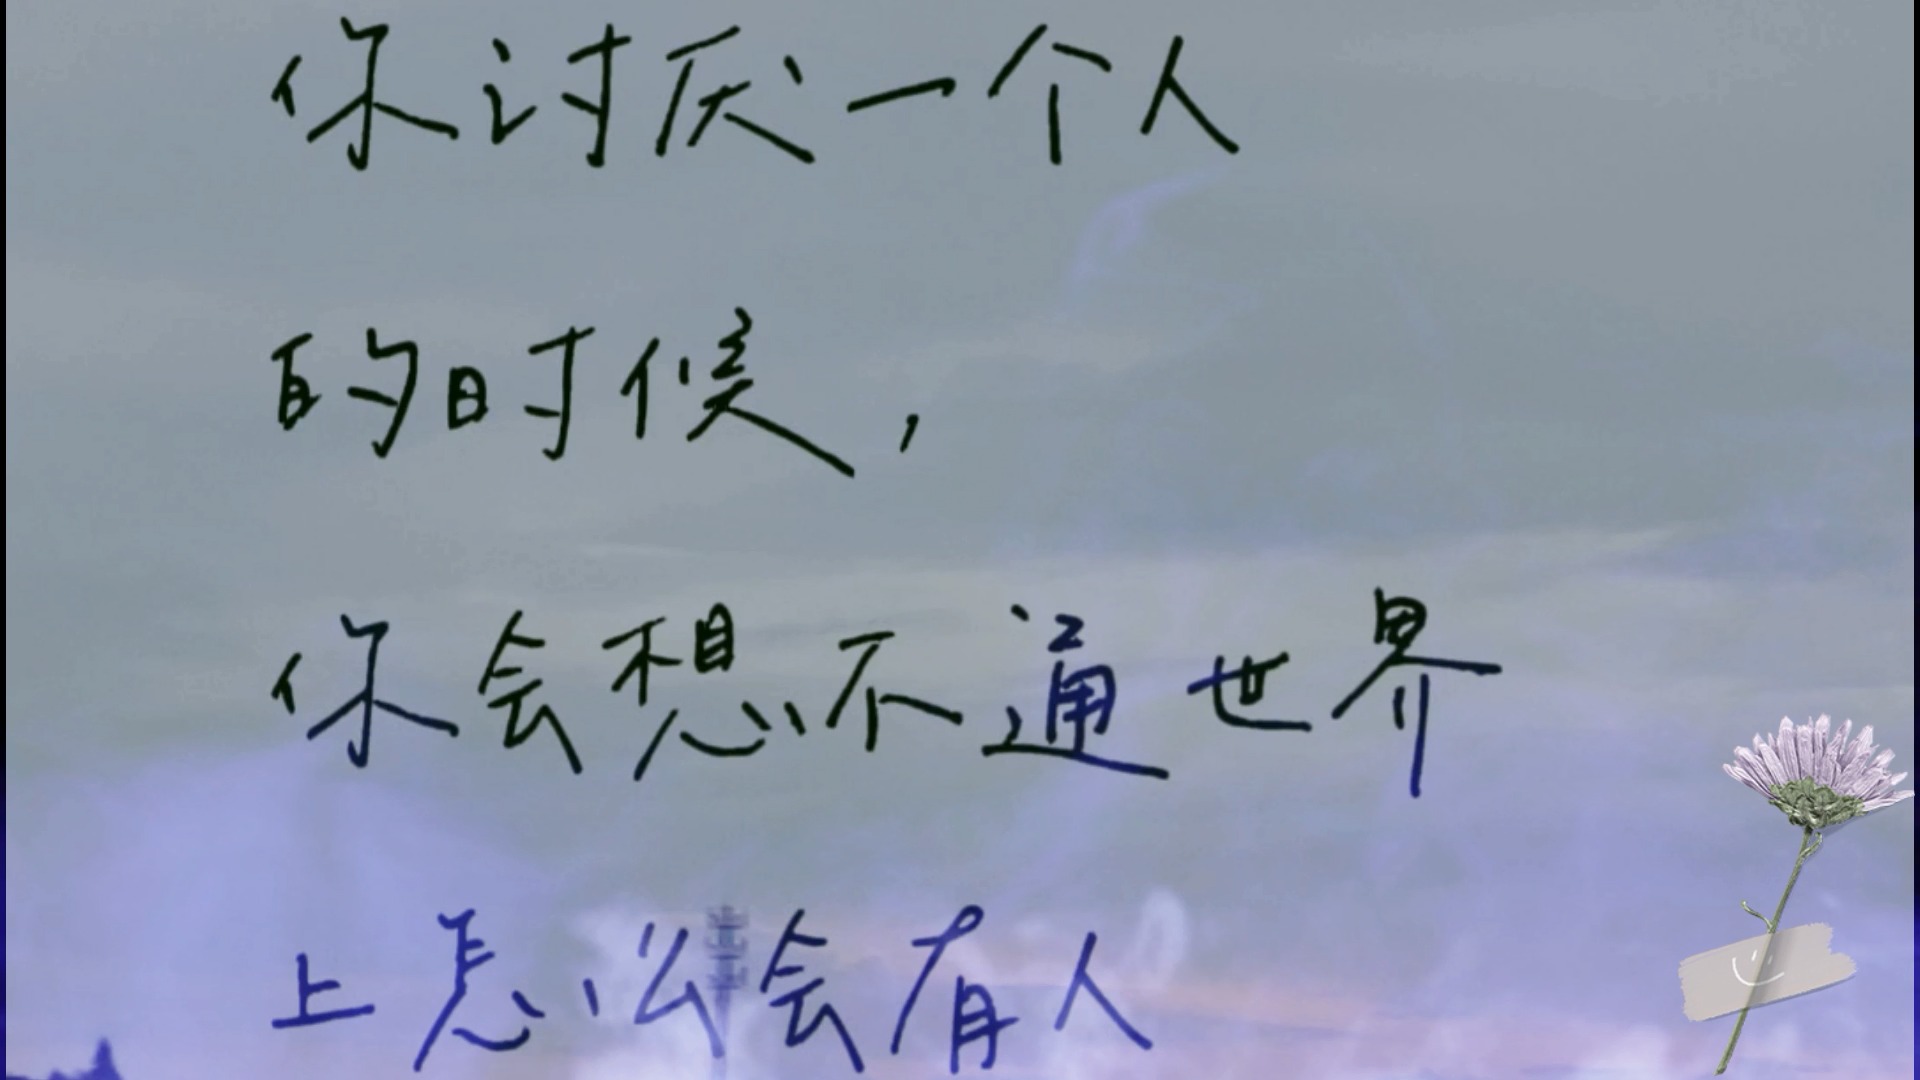 你讨厌一个人
的时候，
你会想不通世界
上怎么会有人